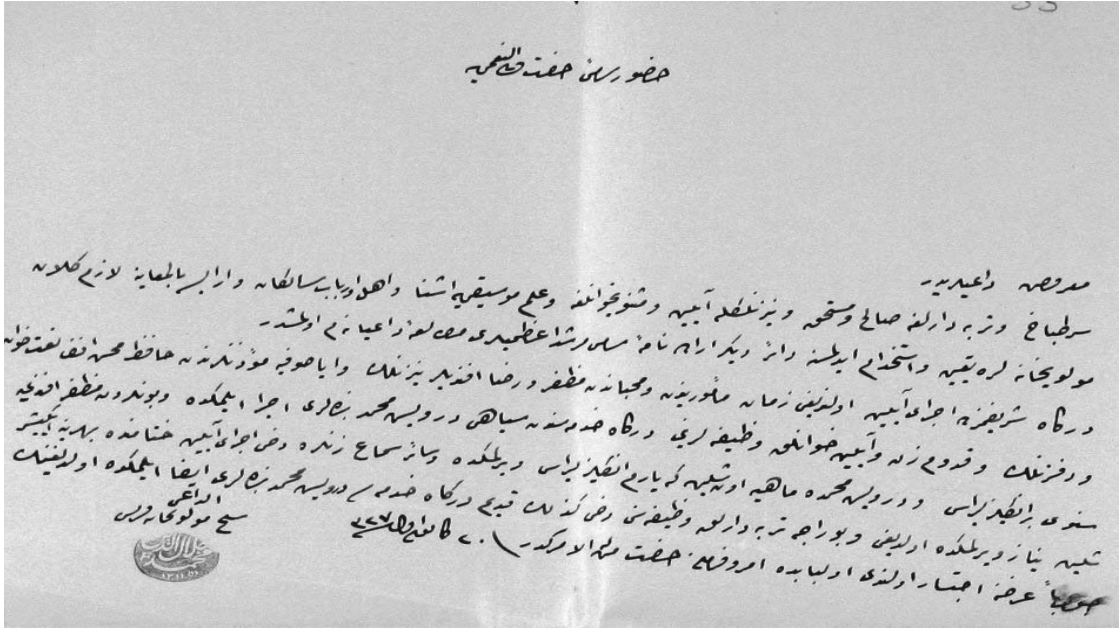 حضور سامئ حضرت ولی النعمیه
معروض داعیلریدر
سرطباخ و تربه دارلغه صالح و مستحق و نیزنلکله آیین و مثنویخوانلغه و علم موسیقیه اشنا و اهل و ارباب سالکان وار ایسه بالمعاینه لازم کلان
مولویخانه لره تعیین و استخدام ایدلمسنه دائر دیکر ارادنامهٔ سامئ مرشد اعظمیلری داعیانه م اولمشدر
درکاه شریفمزده اجرای آیین اولندیغی زمان مأموریندن و محباندن مظفر و رضا افندیلر نیزنلك و ایاصوفیه مؤذنلرندن حافظ محسن افندی نعتخوان
و دفزنلك و قدوم زن و آیین خوانلق وظیفه لرینی درکاه خدمه سندن سیاهی درویش محمد بنده لری اجرا ایلمکده و بونلردن مظفر افندی یه
سنوی بر انکلیز لیراسی و درویش محمده ماهیه اون شلین که یارم انکلیز لیراسی ویرلمکده و سائر سماع زنلره دخی اجرای آیین ختامنده بهرینه ایکیشر
شلین نیاز ویرلمکده اولدیغی و بوراجه تربه دارلق وظیفه سنی دخی کذلك قدیم درکاه خدمه سی درویش محمد بنده لری ایفا ایلمکده اولدیغنك
عرضنه اجتسار اولندی اولبابده امر و فرمان حضرت من له الامرکدر ٢٠ کانون اول ٣٢٧
الداعی
شیخ مولویخانه قبرس